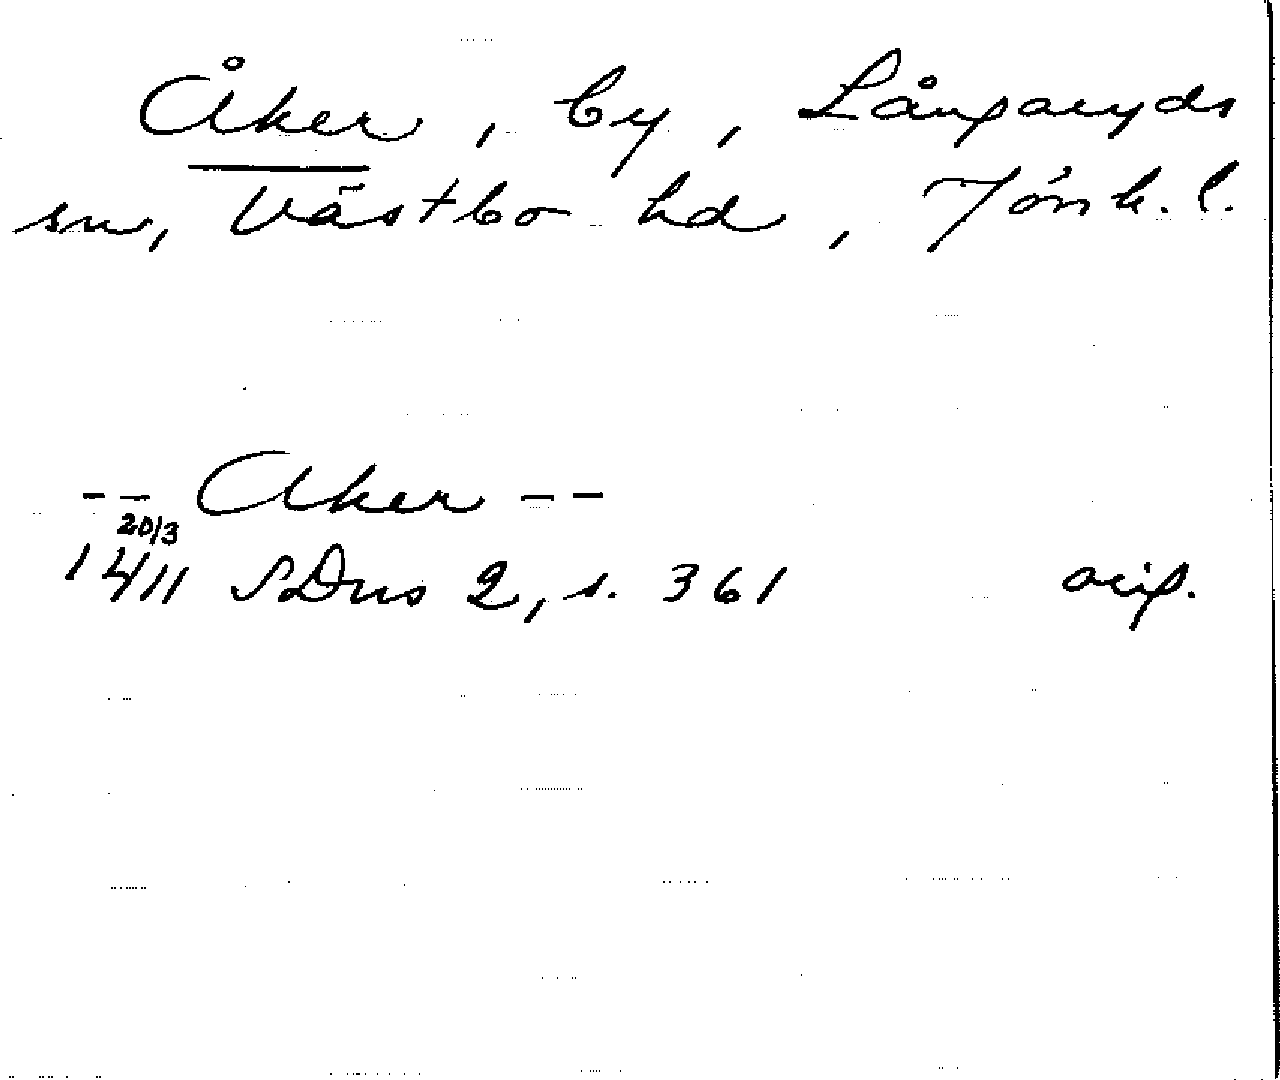 Åker, by, Långaryds
sn, Västbo hd, Jönk. l.
-- Aker --
20/3
1411 SDns 2, s. 361 orig.